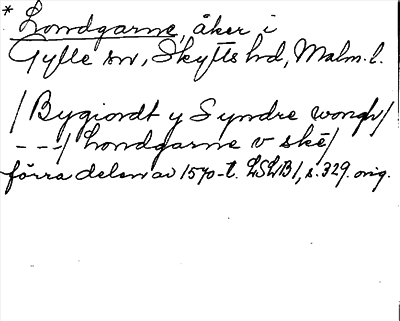 * Londgarne, åker i
Gylle sn, Skytts hd, Malm. l.
/Bygiordt y Syndre wongh/
---/Londgarne v skē/
förra delen av 1570-t. LSLB1, s. 329. orig.